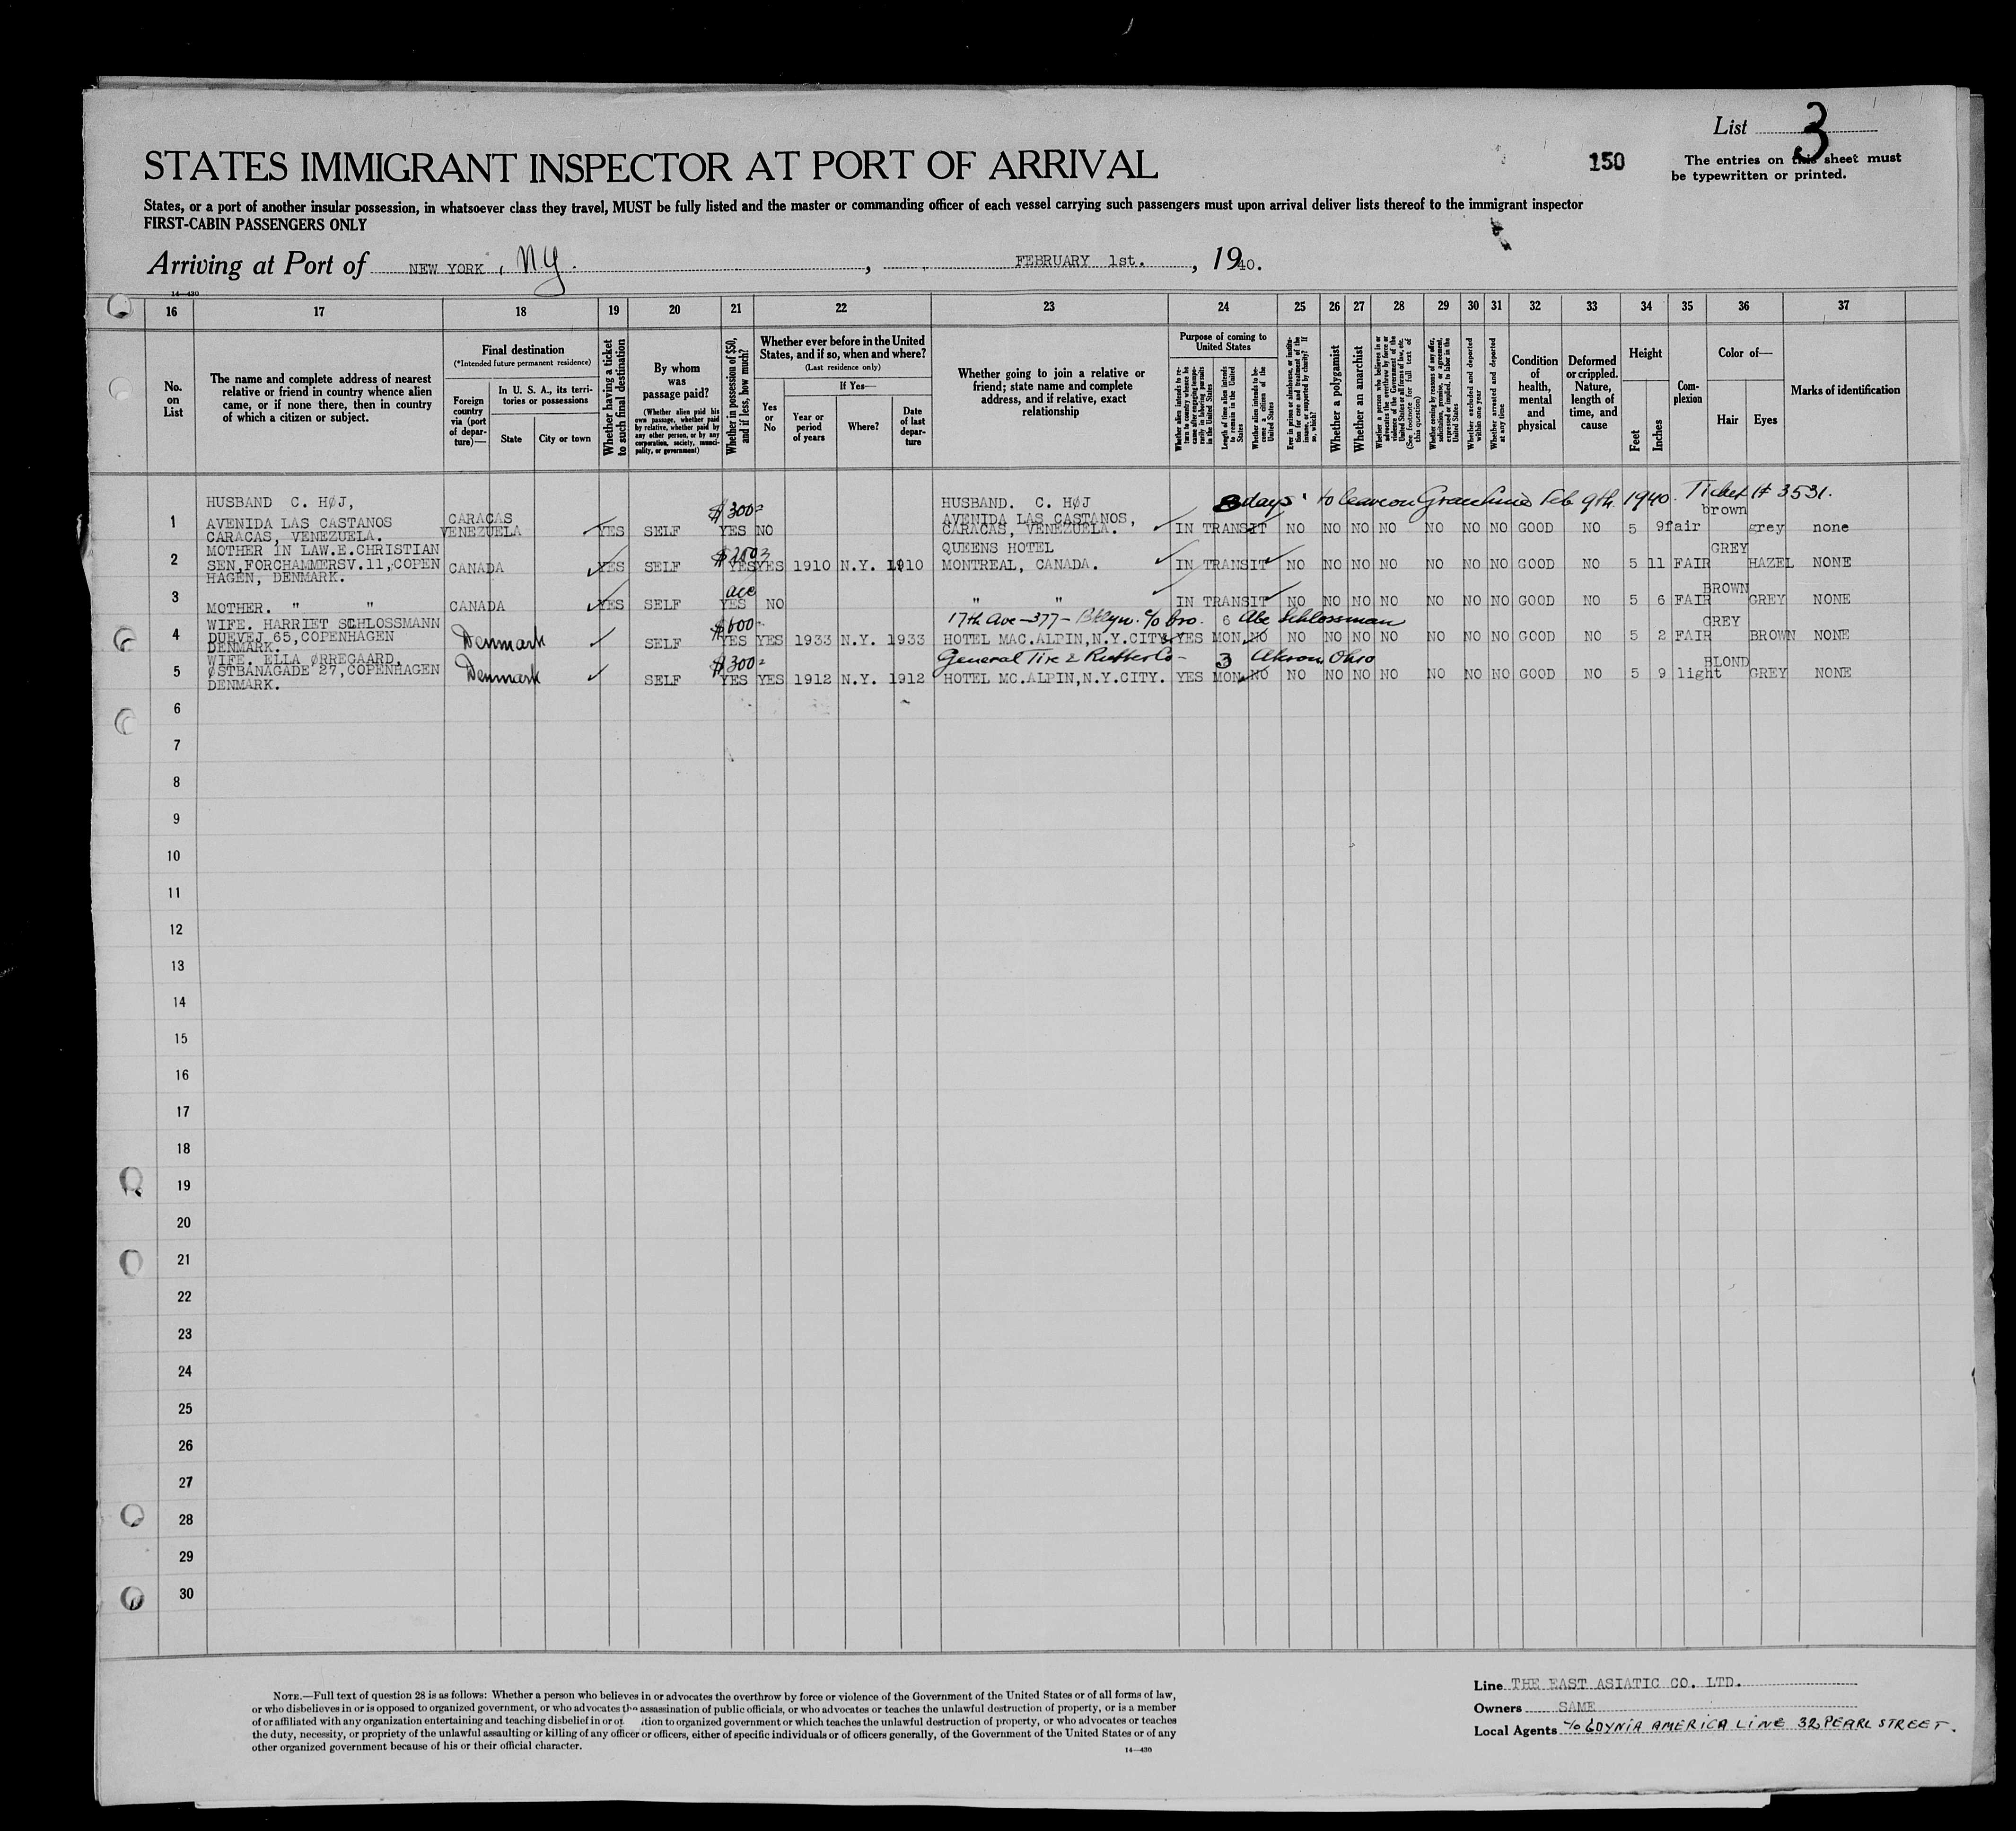 List 3
STATES IMMIGRANT INSPECTOR AT PORT OF ARRIVAL
150
The entries on this sheet must
be typewritten or printed.
States, or a port of another insular possession, in whatsoever class they travel, MUST be fully listed and the master or commanding officer of each vessel carrying such passengers must upon arrival deliver lists thereof to the immigrant inspector
FIRST-CABIN PASSENGERS ONLY
Arriving at Port of NEW YORK, NY. , FEBRUARY 1st. , 1940.
14—430
16 17 18 19 20 21 22 23 24 25 26 27 28 29 30 31 32 33 34 35 36 37
No. on List
The name and complete address of nearest relative or friend in country whence alien came, or if none there, then in country of which a citizen or subject.
Final destination
(*Intended future permanent residence)
Foreign country via (port of departure)—
In U. S. A., its territories or possessions
State
City or town
Whether having a ticket to such final destination
By whom was passage paid?
(Whether alien paid his own passage, whether paid by relative, whether paid by any other person, or by any corporation, society, municipality, or government)
Whether in possession of $50, and if less, how much?
Whether ever before in the United States, and if so, when and where?
(Last residence only)
Yes or No
If Yes—
Year or period of years
Where?
Date of last departure
Whether going to join a relative or friend; state name and complete address, and if relative, exact relationship
Purpose of coming to United States
Whether alien intends to return to country whence he came after engaging temporarily in laboring pursuits in the United States
Length of time alien intends to remain in the United States
Whether alien intends to become a citizen of the United States
Ever in prison or almshouse, or institution for care and treatment of the insane, or supported by charity? If so, which?
Whether a polygamist
Whether an anarchist
Whether a person who believes in or advocates the overthrow by force or violence of the Government of the United States or all forms of law, etc. (See footnote for full text of this question)
Whether coming by reason of any offer, solicitation, promise, or agreement, expressed or implied, to labor in the United States
Whether excluded and deported within one year
Whether arrested and deported at any time
Condition of health, mental and physical
Deformed or crippled. Nature, length of time, and cause
Height
Feet
Inches
Complexion
Color of—
Hair
Eyes
Marks of identification
1 HUSBAND C. HØJ, AVENIDA LAS CASTANOS CARACAS, VENEZUELA. CARACAS VENEZUELA YES SELF $300 YES NO HUSBAND. C. HØJ AVENIDA LAS CASTANOS, CARACAS, VENEZUELA. 8 days to leave on Grace Line Feb 9th 1940. Ticket # 3531. IN TRANSIT NO NO NO NO NO NO NO GOOD NO 5 9 fair brown grey none
2 MOTHER IN LAW.E.CHRISTIAN SEN,FORCHAMMERSV.11,COPEN HAGEN, DENMARK. CANADA YES SELF YES YES 1910 N.Y. 1910 QUEENS HOTEL MONTREAL, CANADA. IN TRANSIT NO NO NO NO NO NO NO GOOD NO 5 11 FAIR GREY HAZEL NONE
3 MOTHER. " " CANADA YES SELF acc YES NO " " IN TRANSIT NO NO NO NO NO NO NO GOOD NO 5 6 FAIR BROWN GREY NONE
4 WIFE. HARRIET SCHLOSSMANN DUEVEJ 65,COPENHAGEN DENMARK. Denmark SELF $600 YES YES 1933 N.Y. 1933 17th Ave - 377 - Bklyn. c/o bro. Abe Schlossman HOTEL MAC.ALPIN,N.Y.CITY YES 6 MON. NO NO NO NO NO NO NO NO GOOD NO 5 2 FAIR GREY BROWN NONE
5 WIFE. ELLA ØRREGAARD, ØSTBANAGADE 27,COPENHAGEN DENMARK. Denmark SELF $300 YES YES 1912 N.Y. 1912 General Tire & Rubber Co - Akron Ohio HOTEL MC.ALPIN,N.Y.CITY. YES 3 MON. NO NO NO NO NO NO NO NO GOOD NO 5 9 light BLOND GREY NONE
6
7
8
9
10
11
12
13
14
15
16
17
18
19
20
21
22
23
24
25
26
27
28
29
30
NOTE.—Full text of question 28 is as follows: Whether a person who believes in or advocates the overthrow by force or violence of the Government of the United States or of all forms of law,
or who disbelieves in or is opposed to organized government, or who advocates the assassination of public officials, or who advocates or teaches the unlawful destruction of property, or is a member
of or affiliated with any organization entertaining and teaching disbelief in or op ition to organized government or which teaches the unlawful destruction of property, or who advocates or teaches
the duty, necessity, or propriety of the unlawful assaulting or killing of any officer or officers, either of specific individuals or of officers generally, of the Government of the United States or of any
other organized government because of his or their official character.
14—430
Line THE EAST ASIATIC CO. LTD.
Owners SAME
Local Agents c/o GDYNIA AMERICA LINE 32 PEARL STREET.